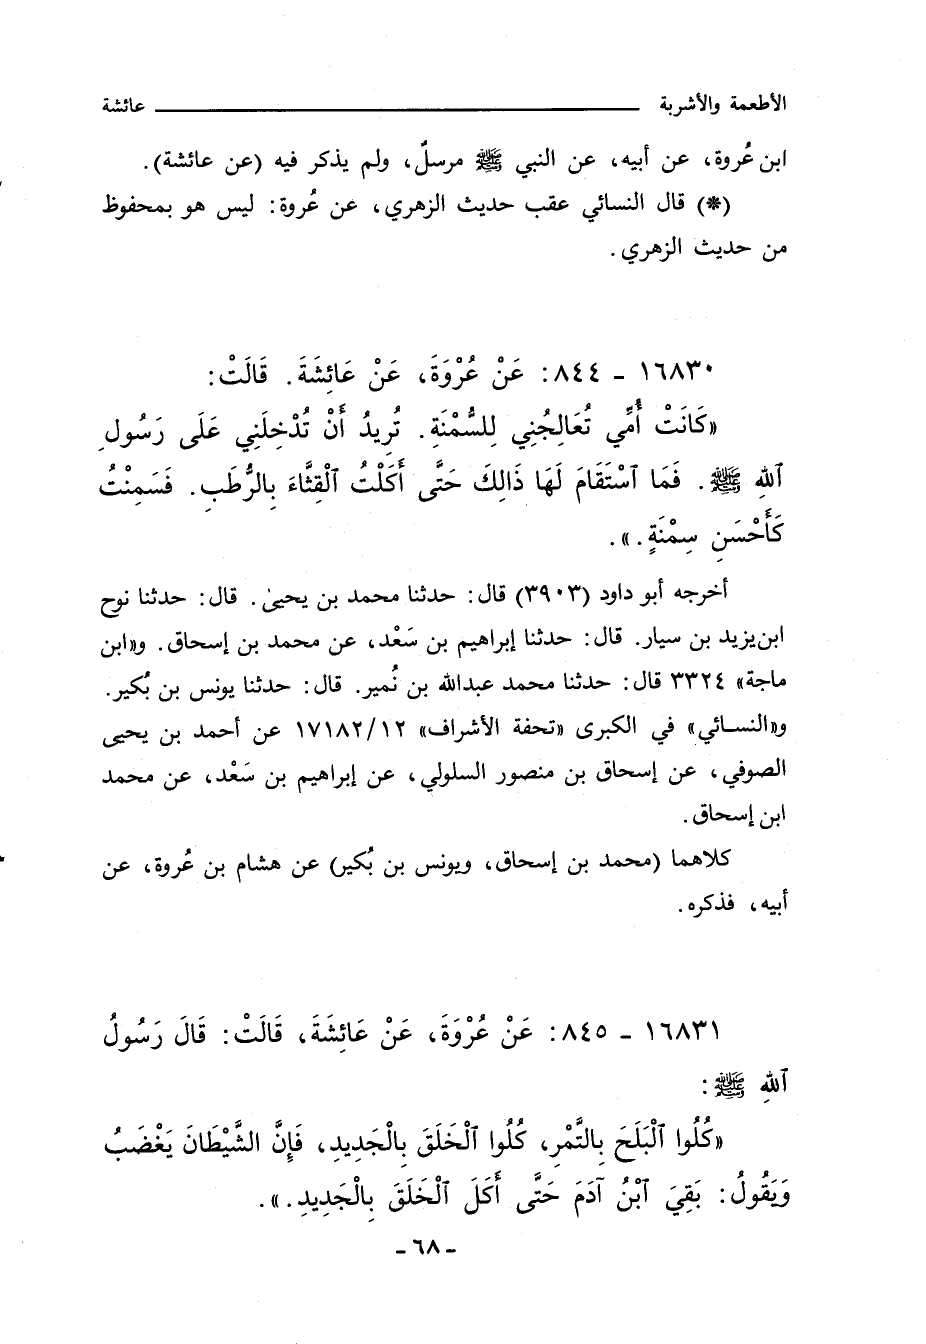 الأطعمة والأشربة ــــــــ عائشة
ابن عُروة، عن أبيه، عن النبي ﷺ مرسلٌ، ولم يذكر فيه (عن عائشة).
(*) قال النسائي عقب حديث الزهري، عن عُروة: ليس هو بمحفوظ
من حديث الزهري.
١٦٨٣٠ - ٨٤٤: عَنْ عُرْوَةَ، عَنْ عَائِشَةَ. قَالَتْ:
«كَانَتْ أُمِّي تُعَالِجُنِي لِلسُّمْنَةِ. تُرِيدُ أَنْ تُدْخِلَنِي عَلَى رَسُولِ
ٱللهِ ﷺ. فَمَا ٱسْتَقَامَ لَهَا ذَالِكَ حَتَّى أَكَلْتُ ٱلْقِثَّاءَ بِالرُّطَبِ. فَسَمِنْتُ
كَأَحْسَنِ سِمْنَةٍ.».
أخرجه أبو داود (٣٩٠٣) قال: حدثنا محمد بن يحيىٰ. قال: حدثنا نوح
ابن يزيد بن سيار. قال: حدثنا إبراهيم بن سَعْد، عن محمد بن إسحاق. و«ابن
ماجة» ٣٣٢٤ قال: حدثنا محمد عبدالله بن نُمير. قال: حدثنا يونس بن بُكير.
و«النسائي» في الكبرى «تحفة الأشراف» ١٧١٨٢/١٢ عن أحمد بن يحيى
الصوفي، عن إسحاق بن منصور السلولي، عن إبراهيم بن سَعْد، عن محمد
ابن إسحاق.
كلاهما (محمد بن إسحاق، ويونس بن بُكير) عن هشام بن عُروة، عن
أبيه، فذكره.
١٦٨٣١ - ٨٤٥: عَنْ عُرْوَةَ، عَنْ عَائِشَةَ، قَالَتْ: قَالَ رَسُولُ
ٱللهِ ﷺ:
«كُلُوا ٱلْبَلَحَ بِالتَّمْرِ، كُلُوا ٱلْخَلَقَ بِالْجَدِيدِ، فَإِنَّ الشَّيْطَانَ يَغْضَبُ
وَيَقُولُ: بَقِيَ ٱبْنُ آدَمَ حَتَّى أَكَلَ ٱلْخَلَقَ بِالْجَدِيدِ.».
- ٦٨ -